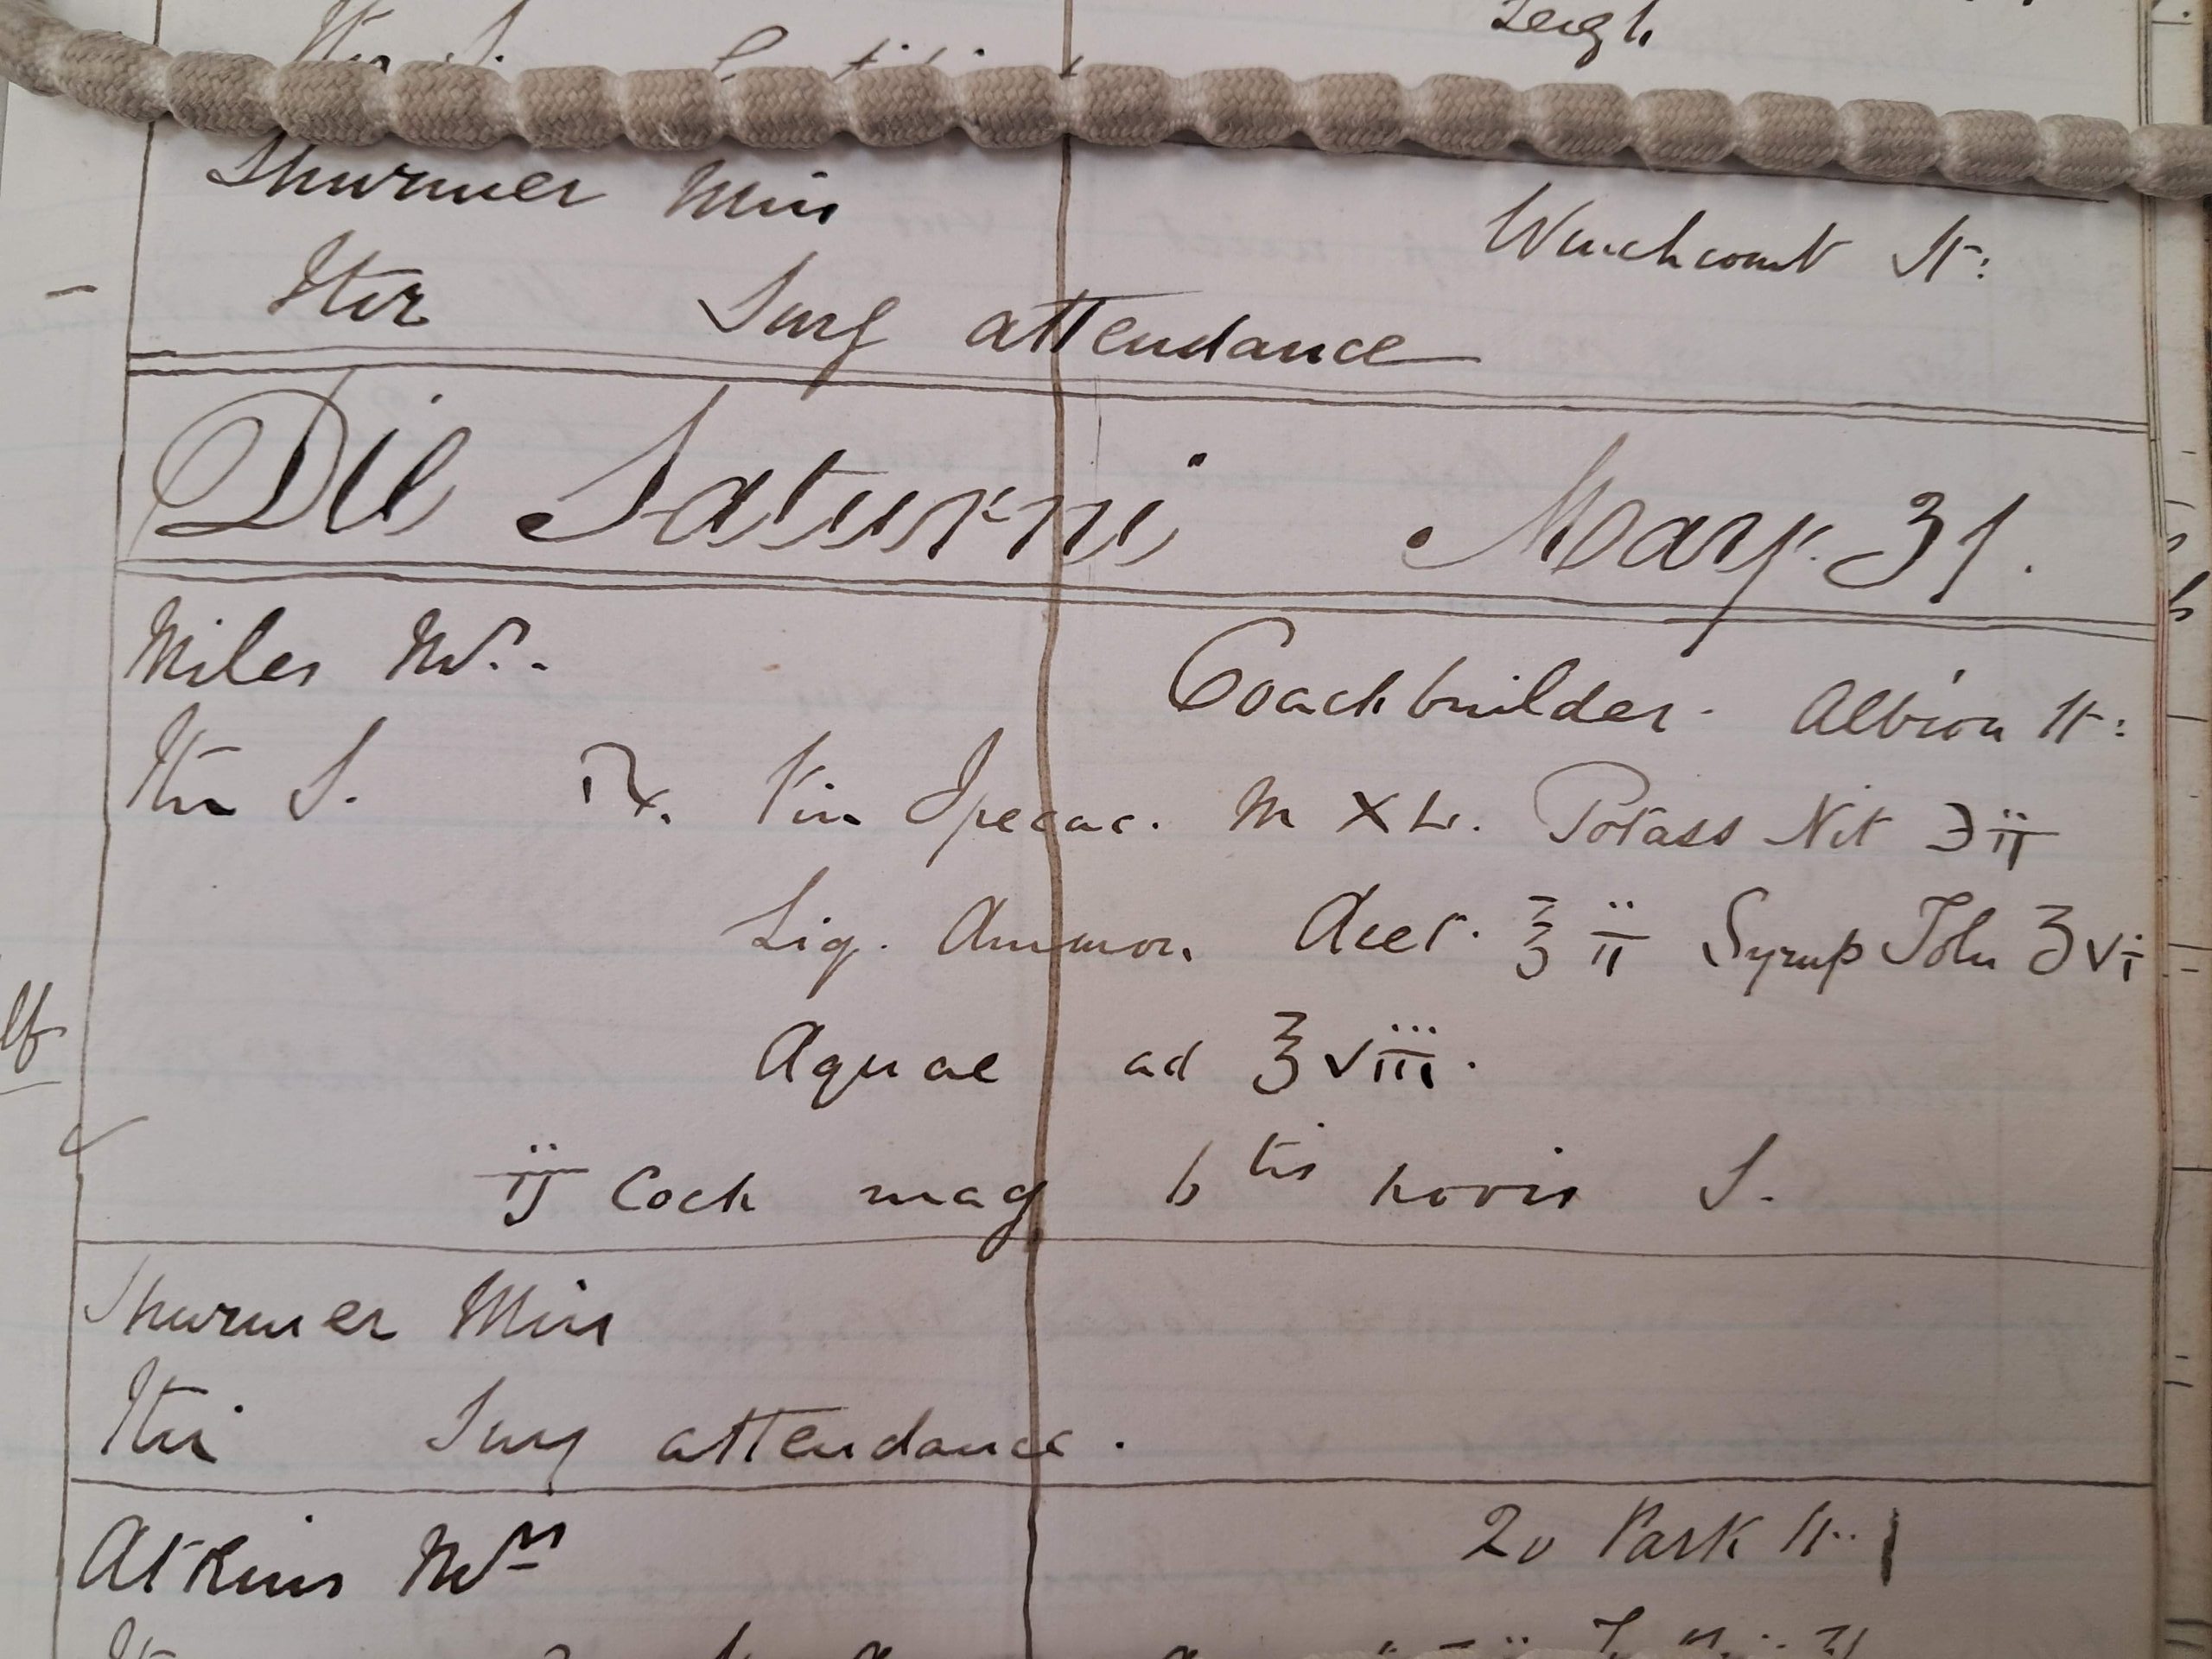 Leigh
Thurmer Miss
Winchcomb St:
Iter Surg attendance
Die Saturni May. 31.
Miles Mr.
Coachbuilder. Albion St:
Iter S. ℞. Vin Ipecac. m XL. Potass Nit ℈ ii
Liq. Ammon. Acet. ℥ ii Syrup Tolu ʒ vi
Aquae ad ℥ viii.
ij Coch mag 6tis horis S.
Thurmer Miss
Iter Surg attendance.
Atkins Mrs 20 Park St.